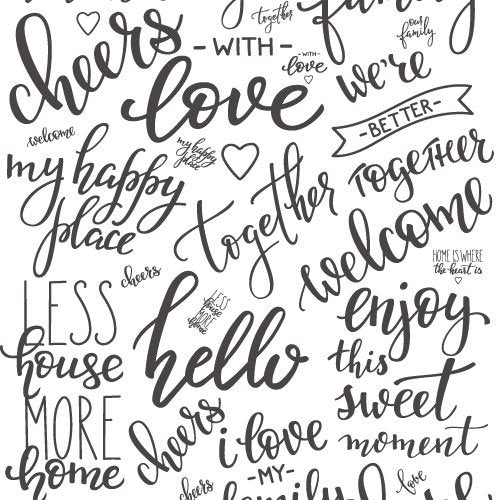 cheers
together
family
our
family
- WITH -
love
- WITH -
love
we're
- BETTER -
TOGETHER
welcome
my happy
place
my happy
place
together
welcome
HOME IS WHERE
the heart is
cheers
LESS
house
MORE
home
LESS
house
MORE
home
hello
enjoy
this
sweet
moment
cheers
i love
- MY -
family
cheers
love